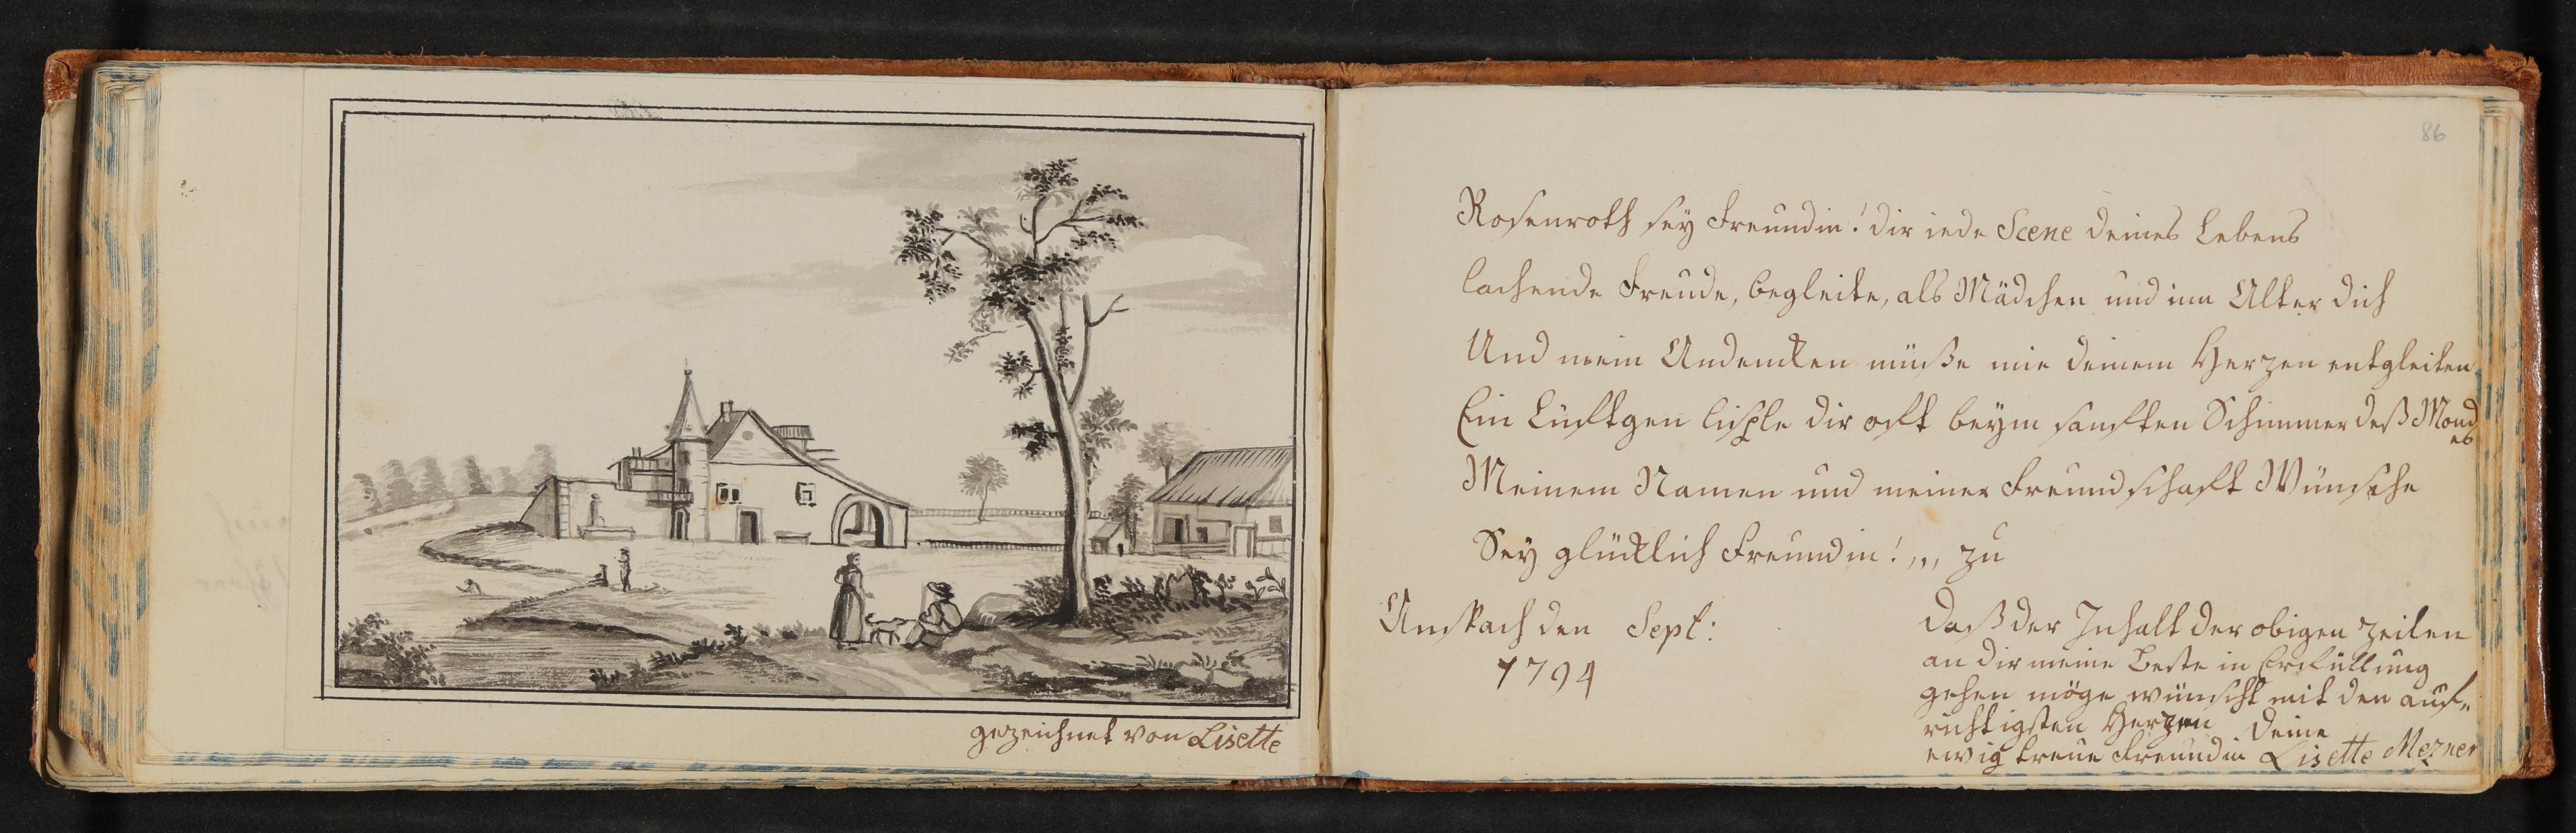 gezeichnet von Lisette
86
Rosenroth sey Freundin! dir iede Scene deines Lebens
lachende Freude, begleite, als Mädchen und im Alter dich
Und mein Andencken müße nie deinem Herzen entgleiten
Ein Lüftgen lisple dir oft beym sanften Schimmer deß Mond
es
Meinem Namen und meiner Freundschaft Wünsche
Sey glücklich Freundin! „„ zu
Anspach den Sept:
1794
Daß der Inhalt der obigen Zeilen
an dir meine Beste in Erfüllung
gehen möge wünscht mit den auf„
richtigsten Herzen deine
ewig treue Freundin Lisette Mezner